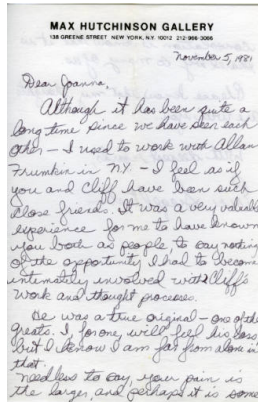 MAX HUTCHINSON GALLERY
138 GREENE STREET NEW YORK, N.Y. 10012 212-966-3066
November 5, 1981
Dear Joanna,
Although it has been quite a
long time since we have seen each
other - I used to work with Allan
Frumkin in NY - I feel as if
you and Cliff have been such
close friends. It was a very valuable
experience for me to have known
you both as people to say nothing
of the opportunity I had to become
intimately involved with Cliff's
work and thought processes.
He was a true original - one of the
greats. I, for one, will feel his loss,
but I know I am far from alone in
that.
Needless to say, your pain is
the larger, and perhaps it is some